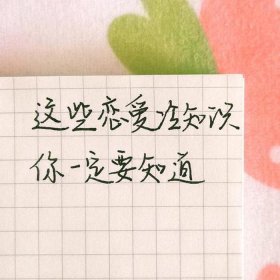 这些恋爱冷知识
你一定要知道